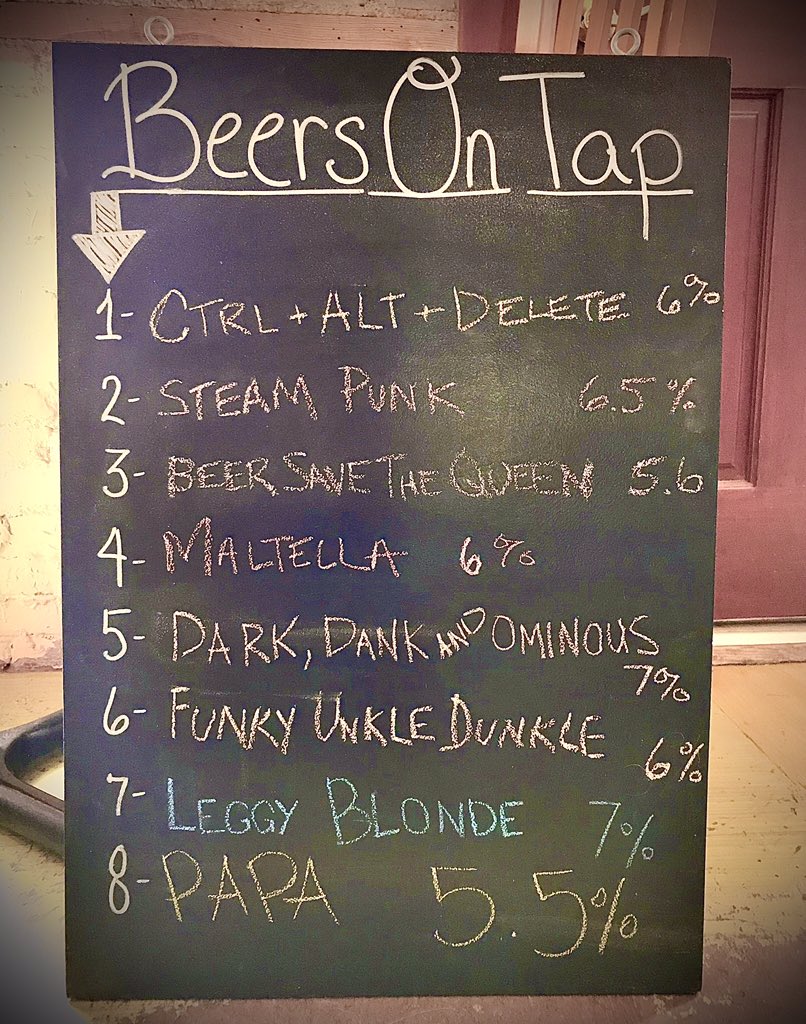 Beers On Tap
1- CTRL + ALT + DELETE 6%
2- STEAM PUNK 6.5%
3- BEER SAVE THE QUEEN 5.6
4- MALTELLA 6%
5- DARK, DANK AND OMINOUS
7%
6- FUNKY UNKLE DUNKLE
6%
7- LEGGY BLONDE 7%
8- PAPA 5.5%